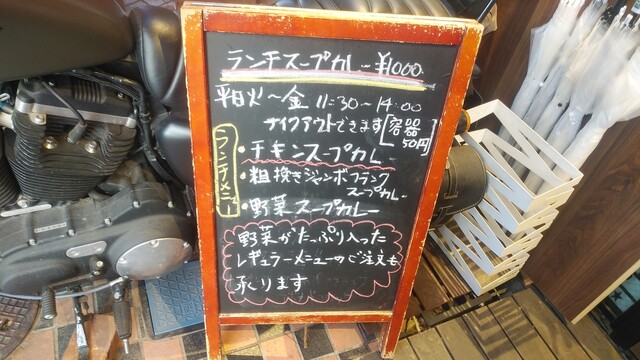 ランチスープカレー ¥1000
平日火〜金 11:30〜14:00
テイクアウトできます[容器50円]
ランチメニュー
・チキンスープカレー
・粗挽きジャンボフランク
スープカレー
・野菜スープカレー
野菜がたっぷり入った
レギュラーメニューのご注文も
承ります